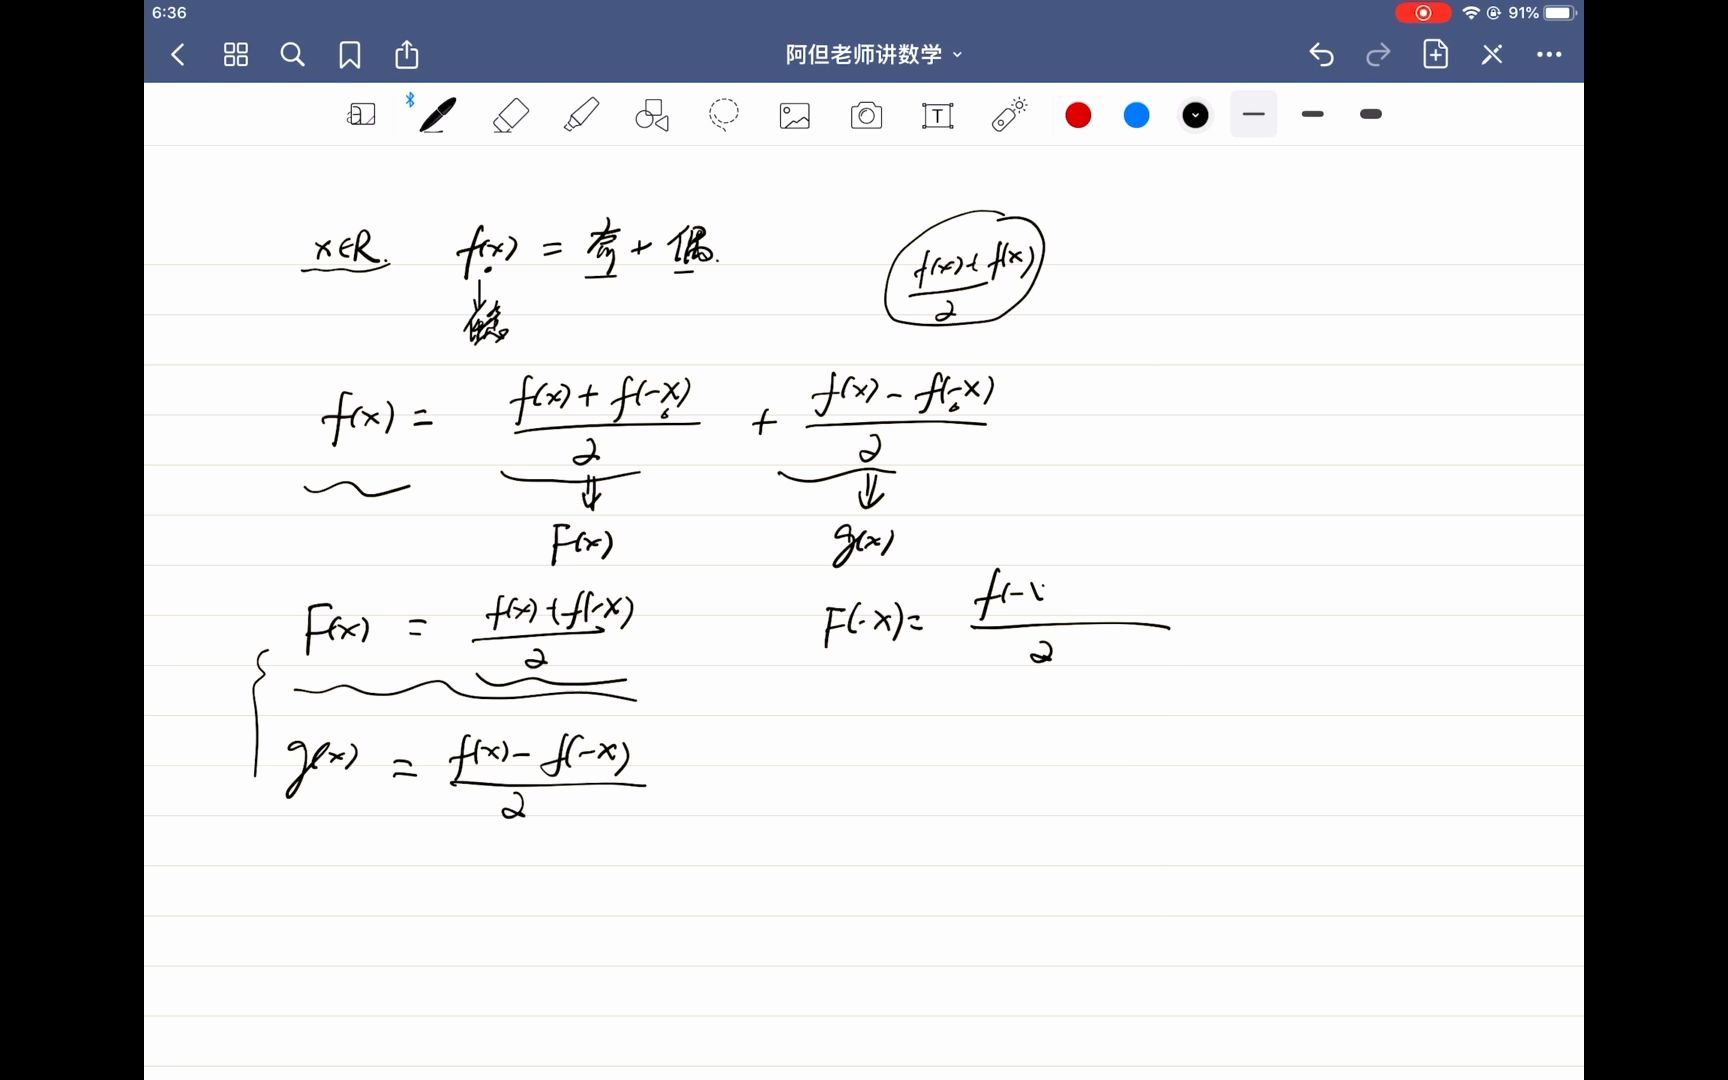 6:36
91%
阿但老师讲数学
T
x∈R. f(x) = 奇 + 偶.
任意
f(x)+f(x)
2
f(x) = f(x)+f(-x) / 2 + f(x)-f(-x) / 2
F(x) g(x)
F(x) = f(x)+f(-x) / 2 F(-x) = f(- / 2
g(x) = f(x)-f(-x) / 2